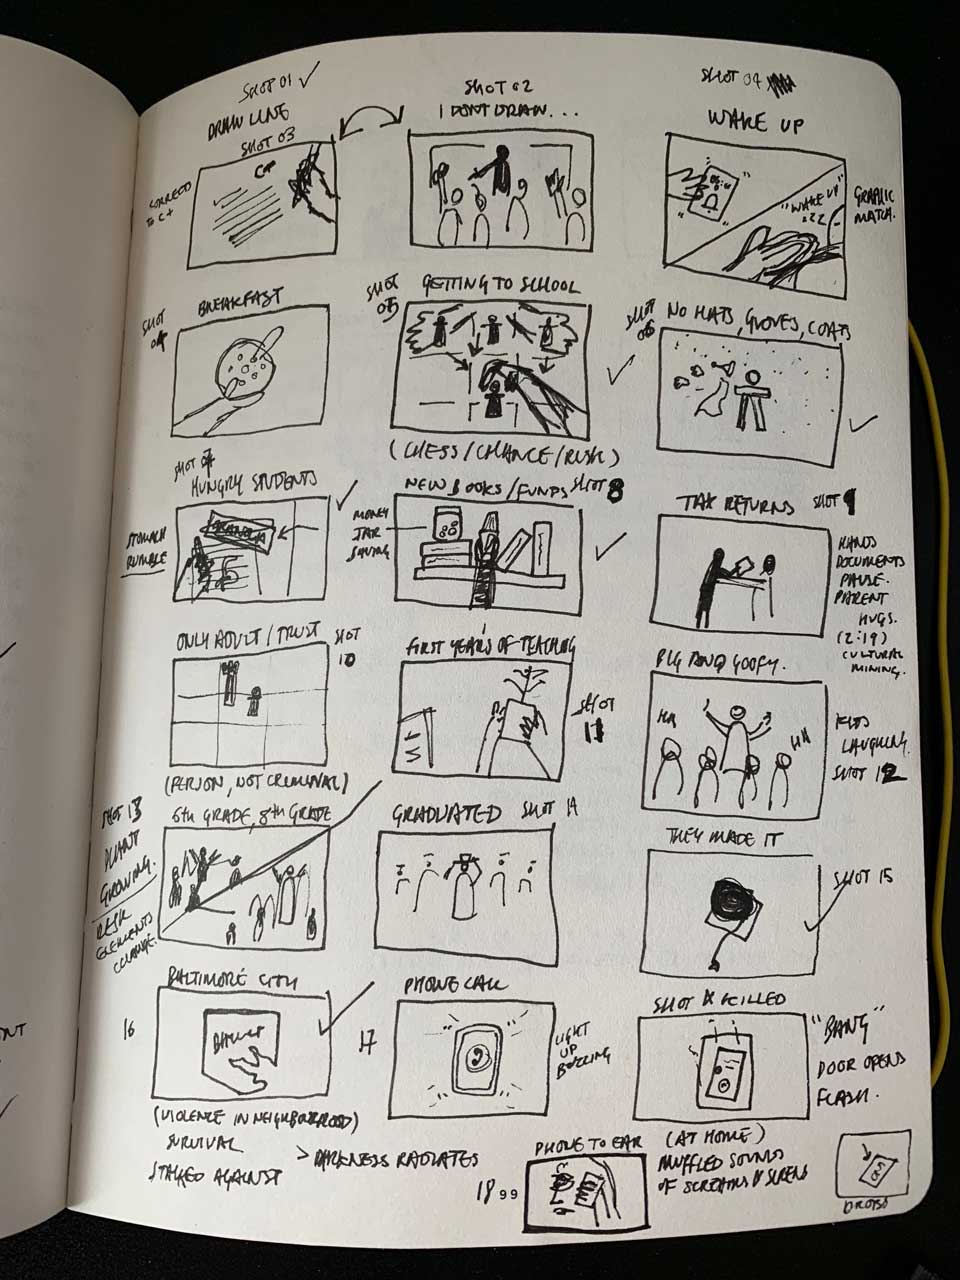 SHOT 01
DRAW LINE
SHOT 03
C+
CORRECTED
TO C+
SHOT 02
I DONT DRAW...
SHOT 04
WAKE UP
"WAKE UP"
ZZZ
GRAPHIC
MATCH.
SHOT
04
BREAKFAST
SHOT
05
GETTING TO SCHOOL
(CHESS/CHANCE/RISK)
SHOT
06
NO HATS, GLOVES, COATS
SHOT 07
HUNGRY STUDENTS
STOMACH
RUMBLE
GRANOLA
NEW BOOKS/FUNDS SHOT 8
MONEY
JAR
SAVING
TAX RETURNS SHOT 9
HANDS
DOCUMENTS
PAUSE.
PARENT
HUGS.
(2:19)
CULTURAL
MINING.
ONLY ADULT/TRUST
SHOT
10
(PERSON, NOT CRIMINAL)
FIRST YEARS OF TEACHING
SHOT
11
BIG AND GOOFY.
HA
HA
KIDS
LAUGHING.
SHOT 12
SHOT 13
PLANT
GROWING.
RISK
ELEMENTS
CHANGE.
6th GRADE, 8th GRADE
GRADUATED SHOT 14
THEY MADE IT
SHOT 15
16
BALTIMORE CITY
(VIOLENCE IN NEIGHBOURHOOD)
SURVIVAL
STACKED AGAINST
> DARKNESS RADIATES
17
PHONE CALL
LIGHT
UP
BUZZING
SHOT & KILLED
"BANG"
DOOR OPENS
FLASH.
(AT HOME)
MUFFLED SOUNDS
OF SCREAMS & SIRENS
18
99
PHONE TO EAR